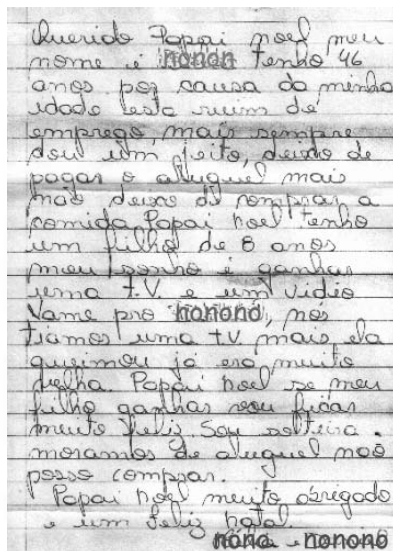 Querido Papai noel meu
nome é nonon tenho 46
anos por causa da minha
idade esta ruim de
emprego, mais sempre
dou um jeito, deixo de
pagar o aluguel mais
não deixo di comprar a
comida Papai noel tenho
um filho de 8 anos
meu sonho é ganhar
uma T.V. e um vidio
Vame pro nonono, nos
tiamos uma tv mais ela
queimou já era muito
velha. Papai noel se meu
filho ganhar vou ficar
muito feliz Sou solteira.
moramos de aluguel não
posso comprar.
Papai noel muito obrigado
e um feliz natal
nono e nonono